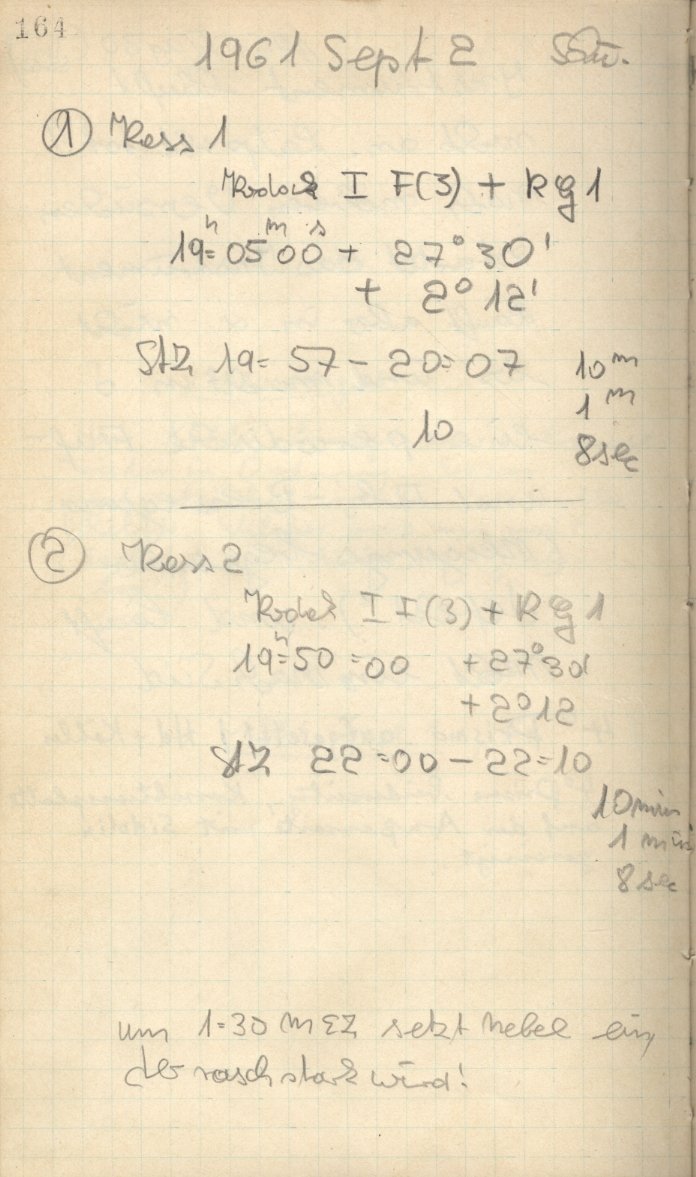 164
1961 Sept 2
① Kass 1
Kodak I F(3) + RG 1
19ʰ= 05ᵐ 00ˢ + 27° 30'
+ 2° 12'
StZ 19= 57 - 20= 07 10 m
1 m
10
8sec
② Kass 2
Kodak I F(3) + RG 1
19ʰ= 50 = 00 + 27° 30'
+ 2° 12
StZ 22 = 00 - 22 = 10
10 min
1 min
8 sec
um 1=30 MEZ setzt Nebel ein,
der rasch stark wird!